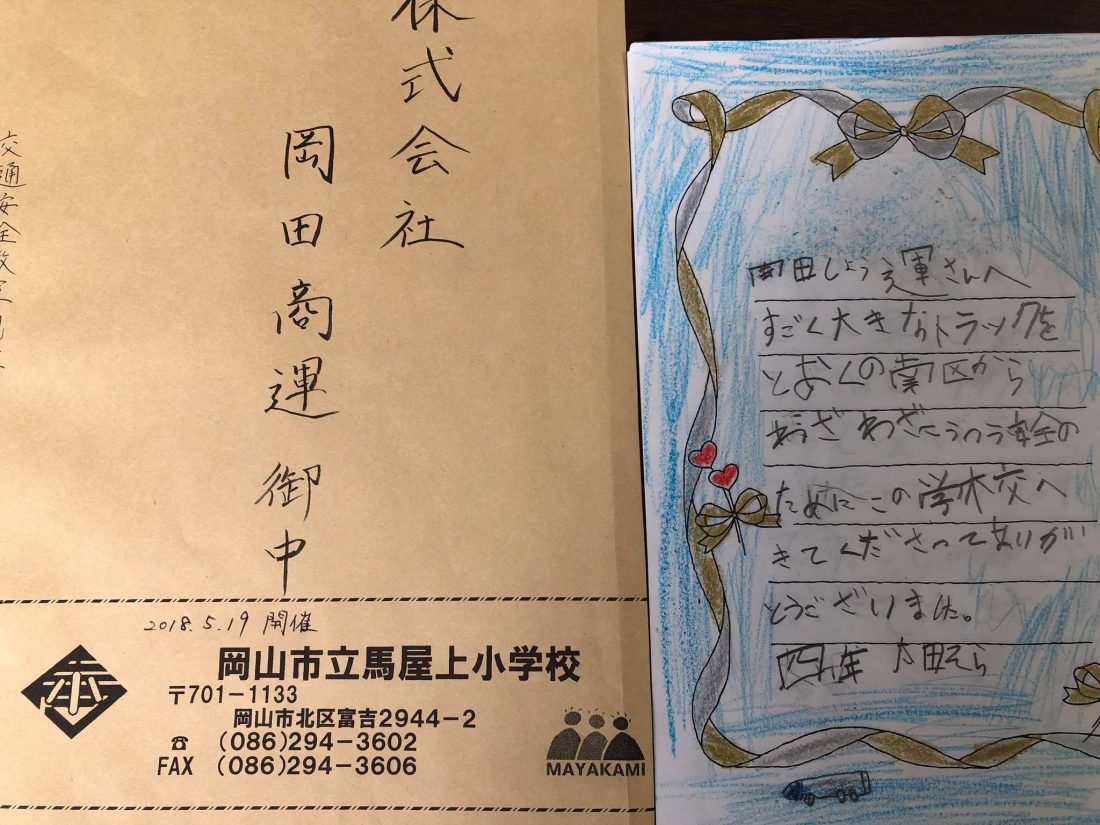 株式会社
岡田商運 御中
交通安全教室
2018.5.19 開催
岡山市立馬屋上小学校
〒701-1133
岡山市北区富吉2944-2
☎ (086)294-3602
FAX (086)294-3606
MAYAKAMI
岡田しょう運さんへ
すごく大きなトラックを
とおくの南区から
わざわざこうつう安全の
ためにこの学校へ
きてくださってありが
とうございました。
四年